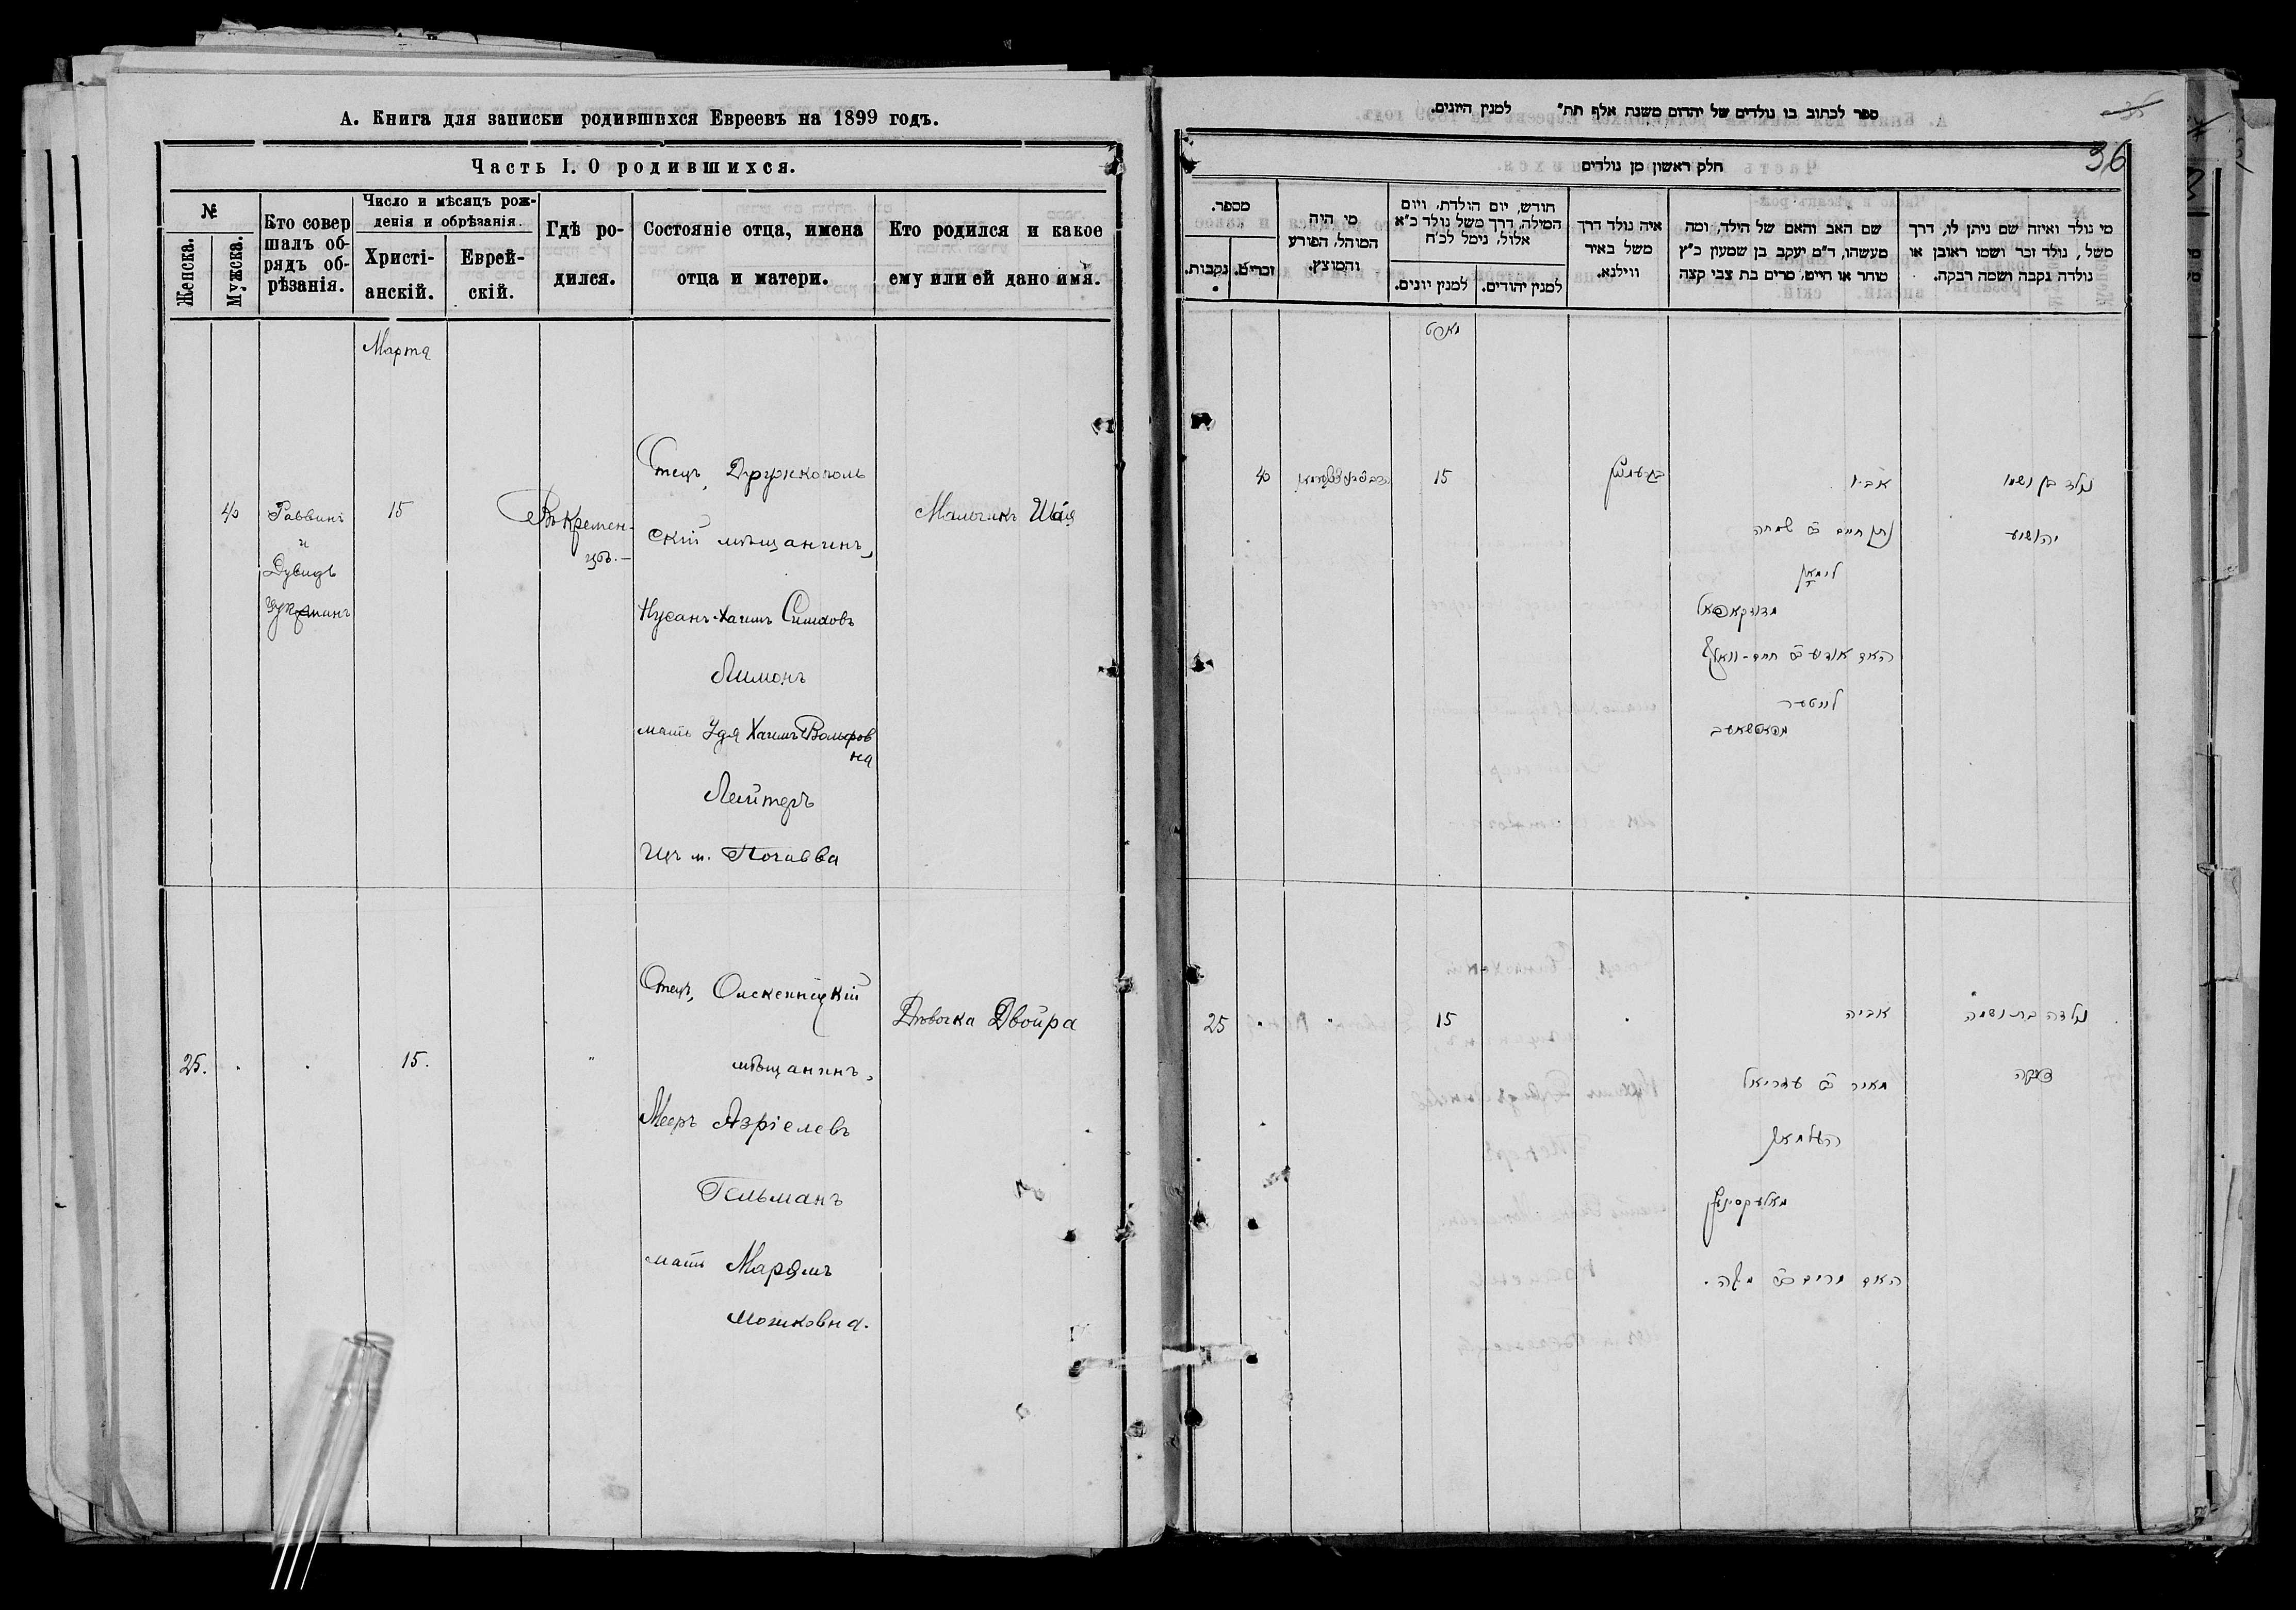 А. Книга для записки родившихся Евреевъ на 1899 годъ.
Часть I. О родившихся.
№
Женска.
Мужска.
Кто совер
шалъ об-
рядъ об-
рѣзанія.
Число и мѣсяцъ рож-
денія и обрѣзанія.
Христі-
анскій.
Еврей-
скій.
Гдѣ ро-
дился.
Состояніе отца, имена
отца и матери.
Кто родился и какое
ему или ей дано имя.
Марта
40
Раввинъ
и
Дувидъ
15
Въ Кремен-
цѣ. —
Отецъ, Дружкополь
скій мѣщанинъ,
Нусанъ-Хаимъ Симховъ
Лимонъ
мать Удя Хаимъ Вольфов
на
Лейтеръ
изъ м. Почаева
Мальчикъ Шая
25.
15.
"
Отецъ, Олексинецкій
мѣщанинъ,
Мееръ Азріелевъ
Гельманъ
мать Марямъ
Мошковна.
Дѣвочка Двойра
ספר לכתוב בו נולדים של יהדום משנת אלף תת״ למנין היונים.
36
חלק ראשון מן נולדים
מספר.
נקבות.
זכרים.
מי היה
המוהל, הפורע
והמוצץ.
חודש, יום הולדת, ויום
המילה, דרך משל נולד כ״א
אלול, נימל לכ״ח
למנין יונים.
למנין יהודים.
איה נולד דרך
משל באיר
ווילנא.
שם האב והאם של הילד, ומה
מעשהו, ד״מ יעקב בן שמעון כ״ץ
סוחר או חייט, מרים בת צבי קצה
מי נולד ואיזה שם ניתן לו, דרך
משל, נולד זכר ושמו ראובן או
נולדה נקבה ושמה רבקה.
מארט
40
15
אביו
נתן חיים ב׳ שמחה
לימאן
האם אודיע ב׳ חיים-וואלף
לייטער
נולד בן ושמו
יהושע
25
15
אביה
מאיר ב׳ עזריאל
העלמאן
האם מרים ב׳ משה.
נולדה בת ושמה
דבורה